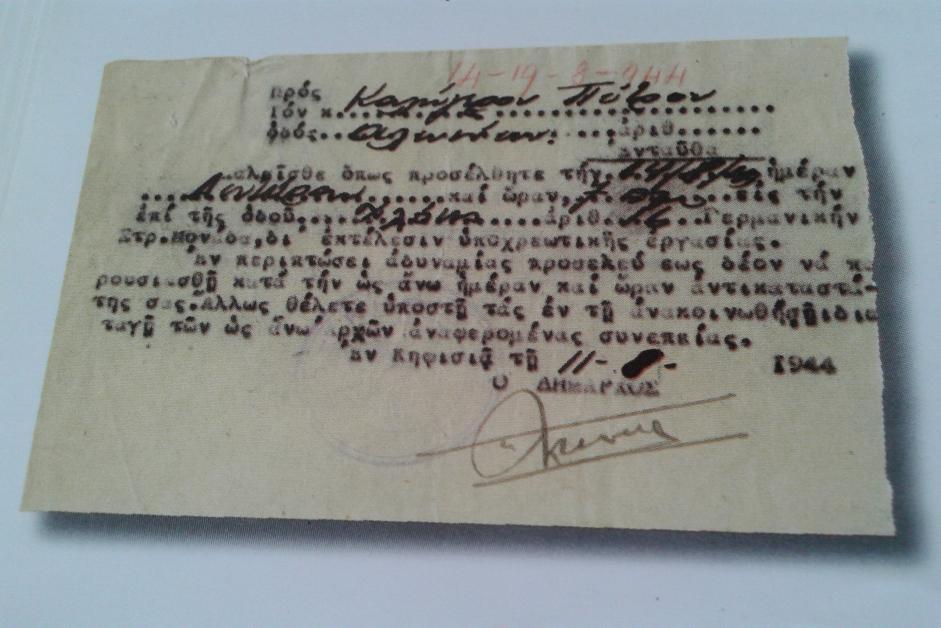 14-19-8-944
Πρός
Τόν κ. Καλήγερον Πέτρον
ὁδός....Ὀλύμπου. ....ἀριθ......
Ἐνταῦθα
Καλεῖσθε ὅπως προσέλθητε τήν ἡμέραν
Δευτέραν ....καί ὥραν, 7 εἰς τήν
ἐπί τῆς ὁδοῦ.... ἀριθ. 14 Γερμανικήν
Στρ.Μονάδα,δι' ἐκτέλεσιν ὑποχρεωτικῆς ἐργασίας.
Ἐν περιπτώσει ἀδυναμίας προσελεύ εως δέον νά πα
ρουσιασθῇ κατά τήν ὡς ἄνω ἡμέραν καί ὥραν ἀντικαταστά-
της σας.Ἄλλως θέλετε ὑποστῆ τάς ἐν τῇ ἀνακοινωθήσῃ διαταγῇ
ταγῇ τῶν ὡς ἄνω ἀρχῶν ἀναφερομένας συνεπείας.
Ἐν Κηφισιᾷ τῇ 11- 8 - 1944
Ο ΔΗΜΑΡΧΟΣ